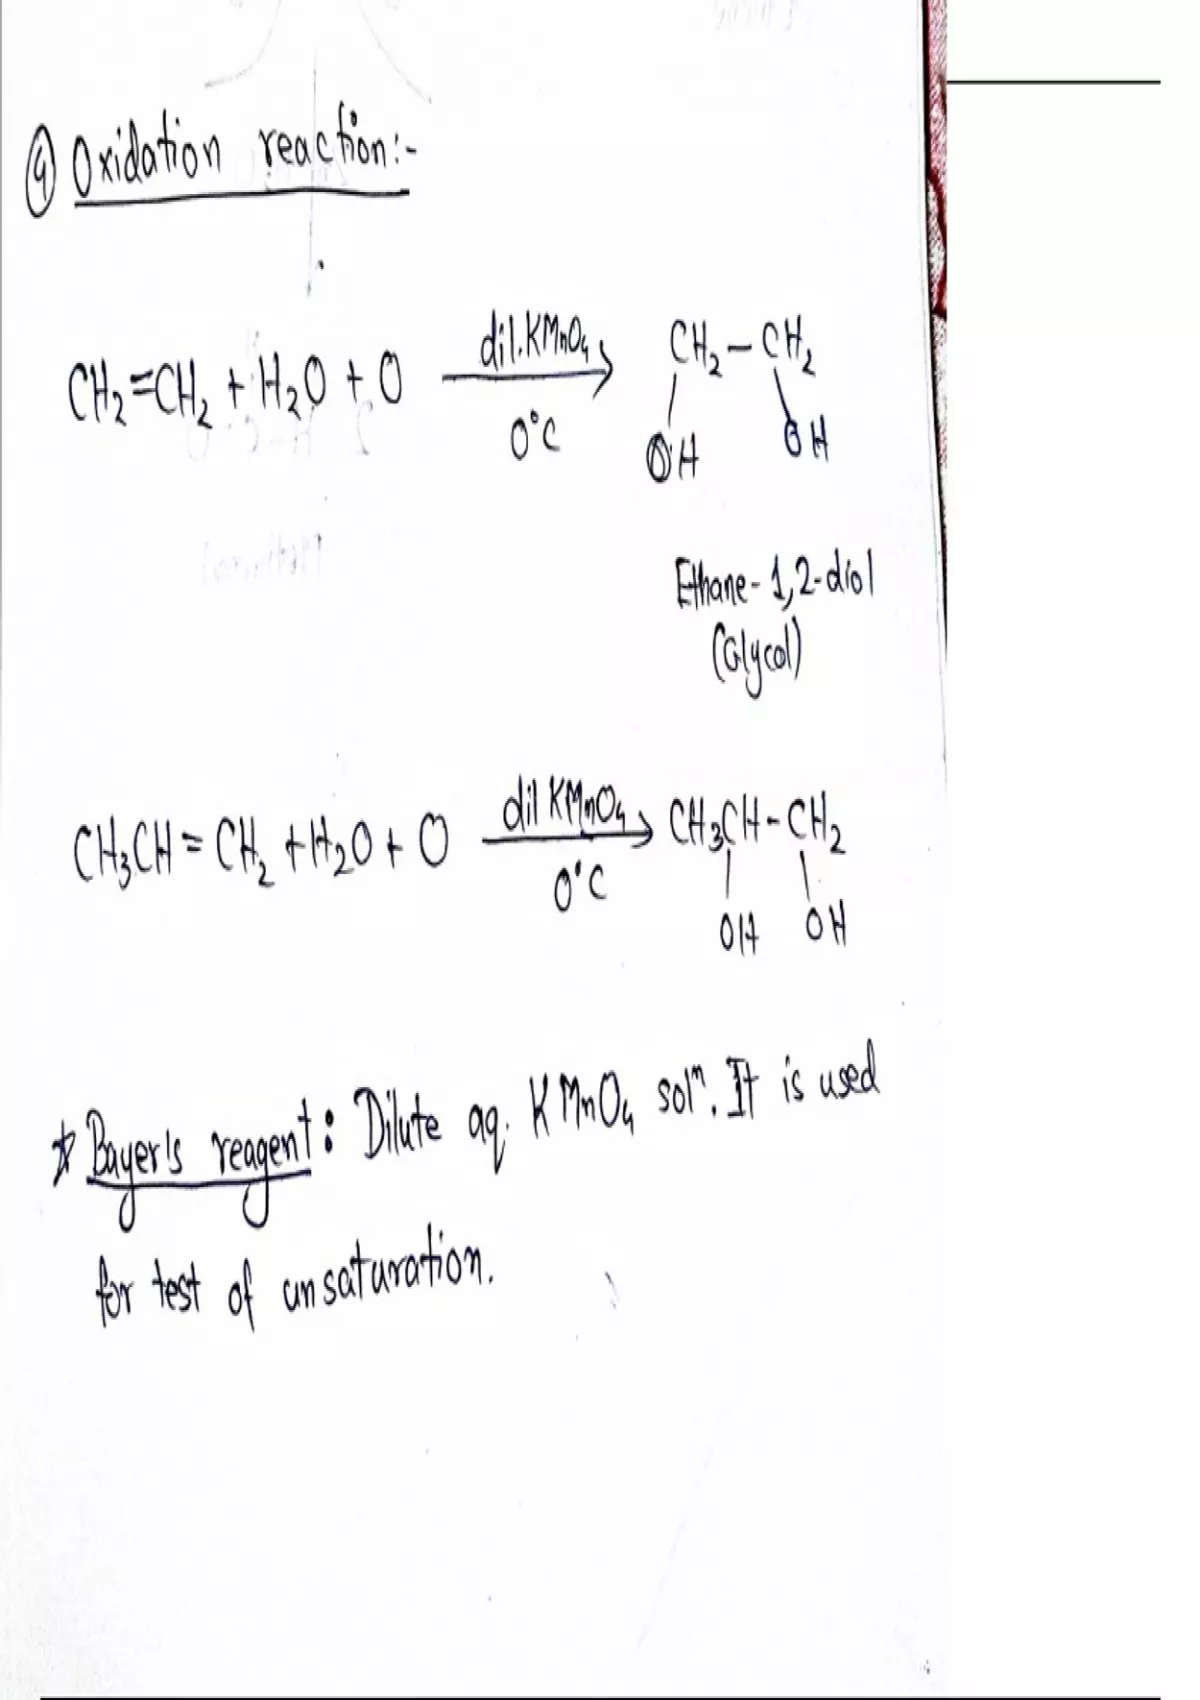 ④ Oxidation reaction:-
CH₂=CH₂ + H₂O + O dil. KMnO₄ → 0°C CH₂ – CH₂
OH OH
Ethane-1,2-diol
(Glycol)
CH₃CH = CH₂ + H₂O + O dil KMnO₄ → 0°C CH₃CH – CH₂
OH OH
☆ Bayer's reagent: Dilute aq. KMnO₄ solⁿ. It is used
for test of unsaturation.